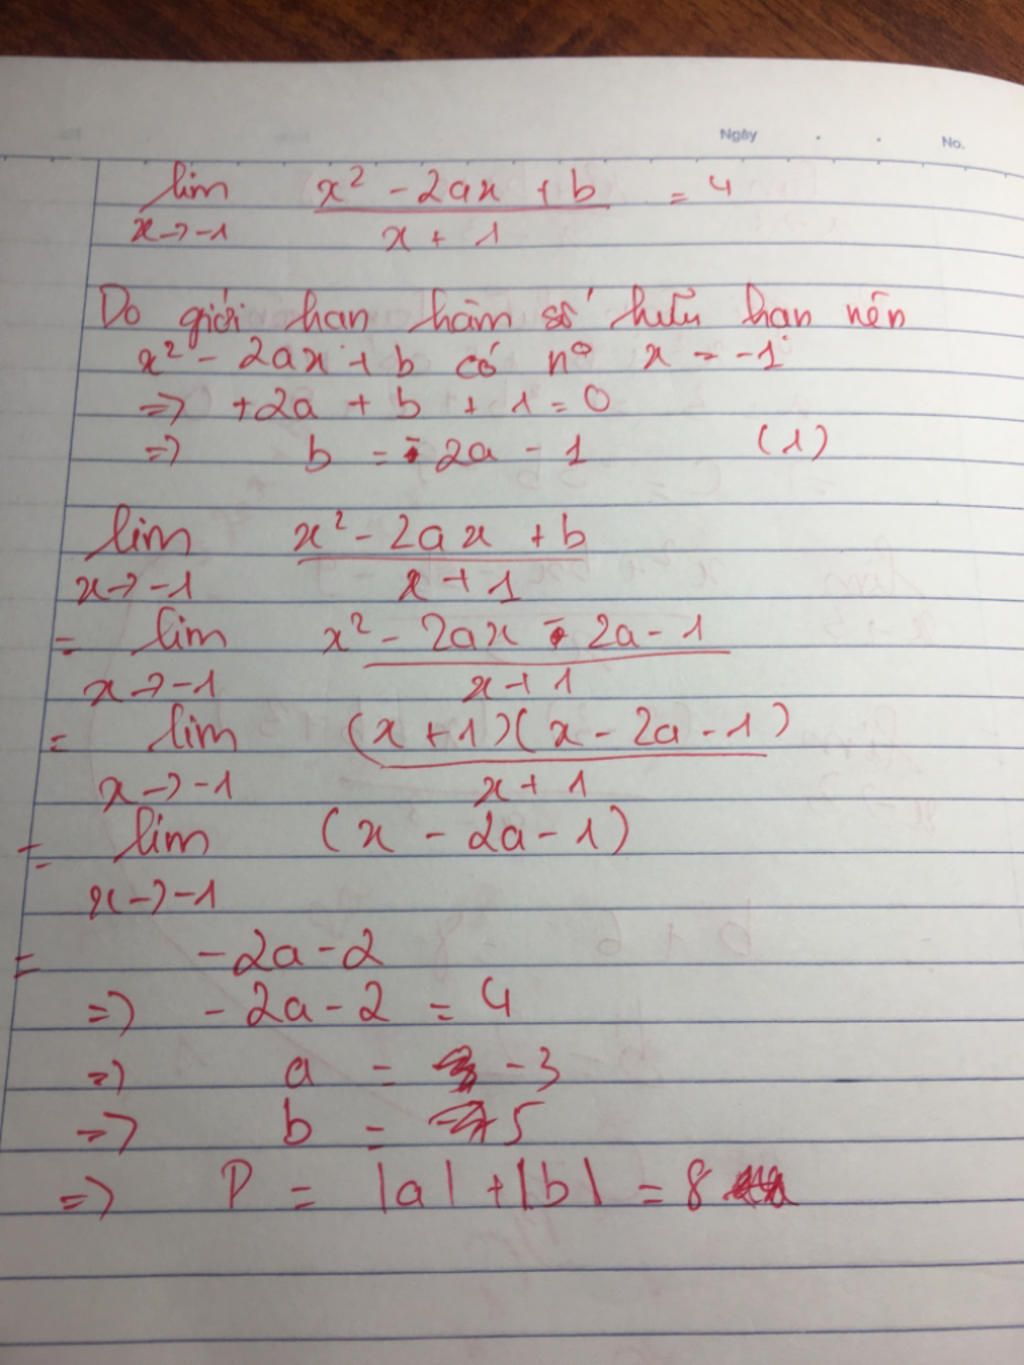 Ngày . . No.
lim x² - 2ax + b = 4
x→-1 x + 1
Do giới hạn hàm số hữu hạn nên
x² - 2ax + b có nº x = -1
=> +2a + b + 1 = 0
=> b = -2a - 1 (1)
lim x² - 2ax + b
x→-1 x + 1
= lim x² - 2ax - 2a - 1
x→-1 x + 1
= lim (x + 1)(x - 2a - 1)
x→-1 x + 1
= lim (x - 2a - 1)
x→-1
= -2a - 2
=> -2a - 2 = 4
=> a = -3
=> b = 5
=> P = |a| + |b| = 8